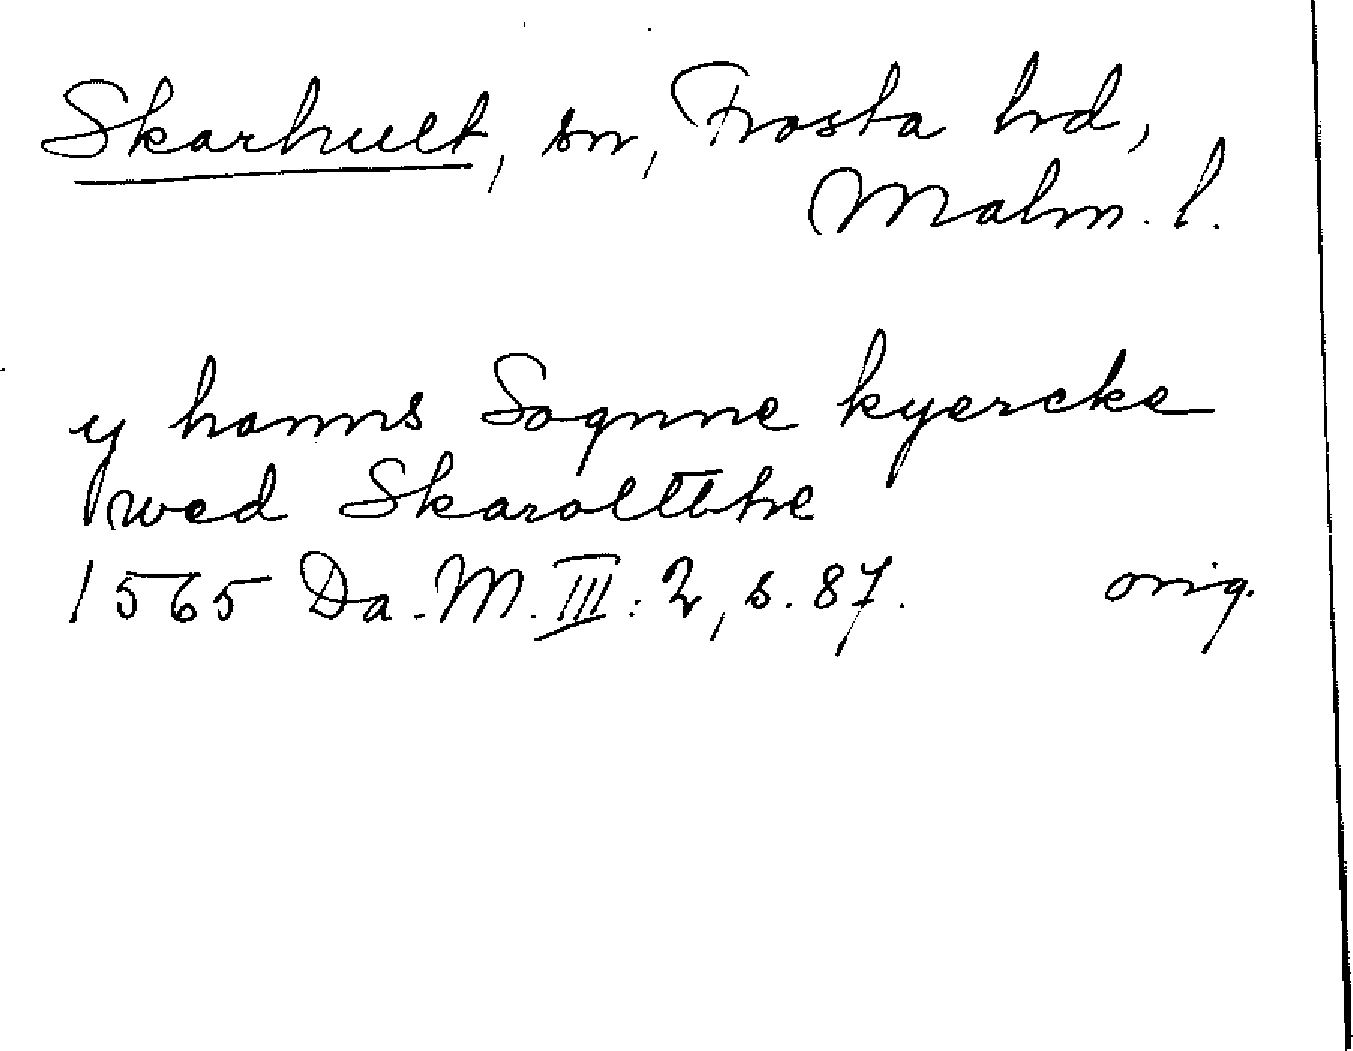 Skarhult, sn, Frosta hd,
Malm. l.
y hanns Sognne kyercke
wed Skaroltthe
1565 Da. M. III: 2, s. 87. orig.